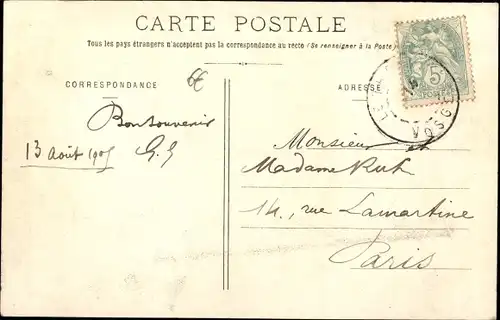 CARTE POSTALE
Tous les pays étrangers n'acceptent pas la correspondance au recto (Se renseigner à la Poste)
CORRESPONDANCE
ADRESSE
Bon souvenir
13 Août 190
Monsieur et
Madame
14, rue Lamartine
Paris
VOSGES
5